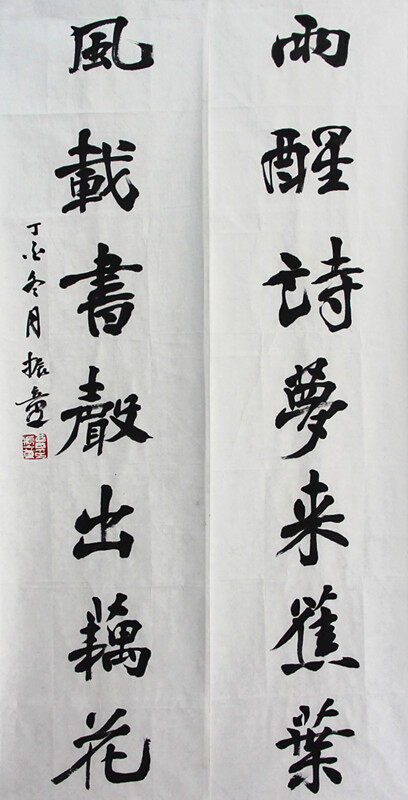 雨醒詩夢来蕉葉
風載書聲出藕花
丁酉冬月振童